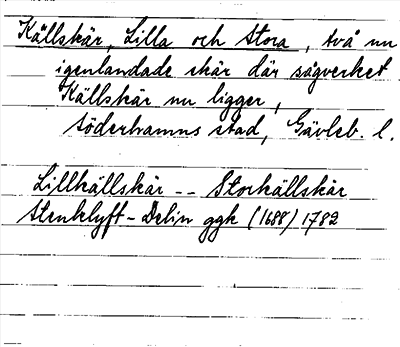 Källskär, Lilla och Stora, två nu
igenlandade skär där sågverket
Källskär nu ligger,
Söderhamns stad, Gävleb. l.
Lillkällskär -- Storkällskär
Stenklyft-Delin ggk (1688) 1782